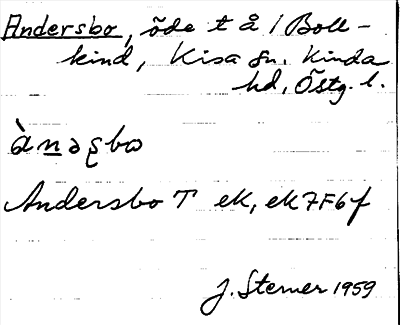 Andersbo, öde t å 1 Boll-
kind, Kisa sn. Kinda
hd, Östg. l.
ànəʂbω
Andersbo T ek, ek 7F6f
J. Sterner 1959